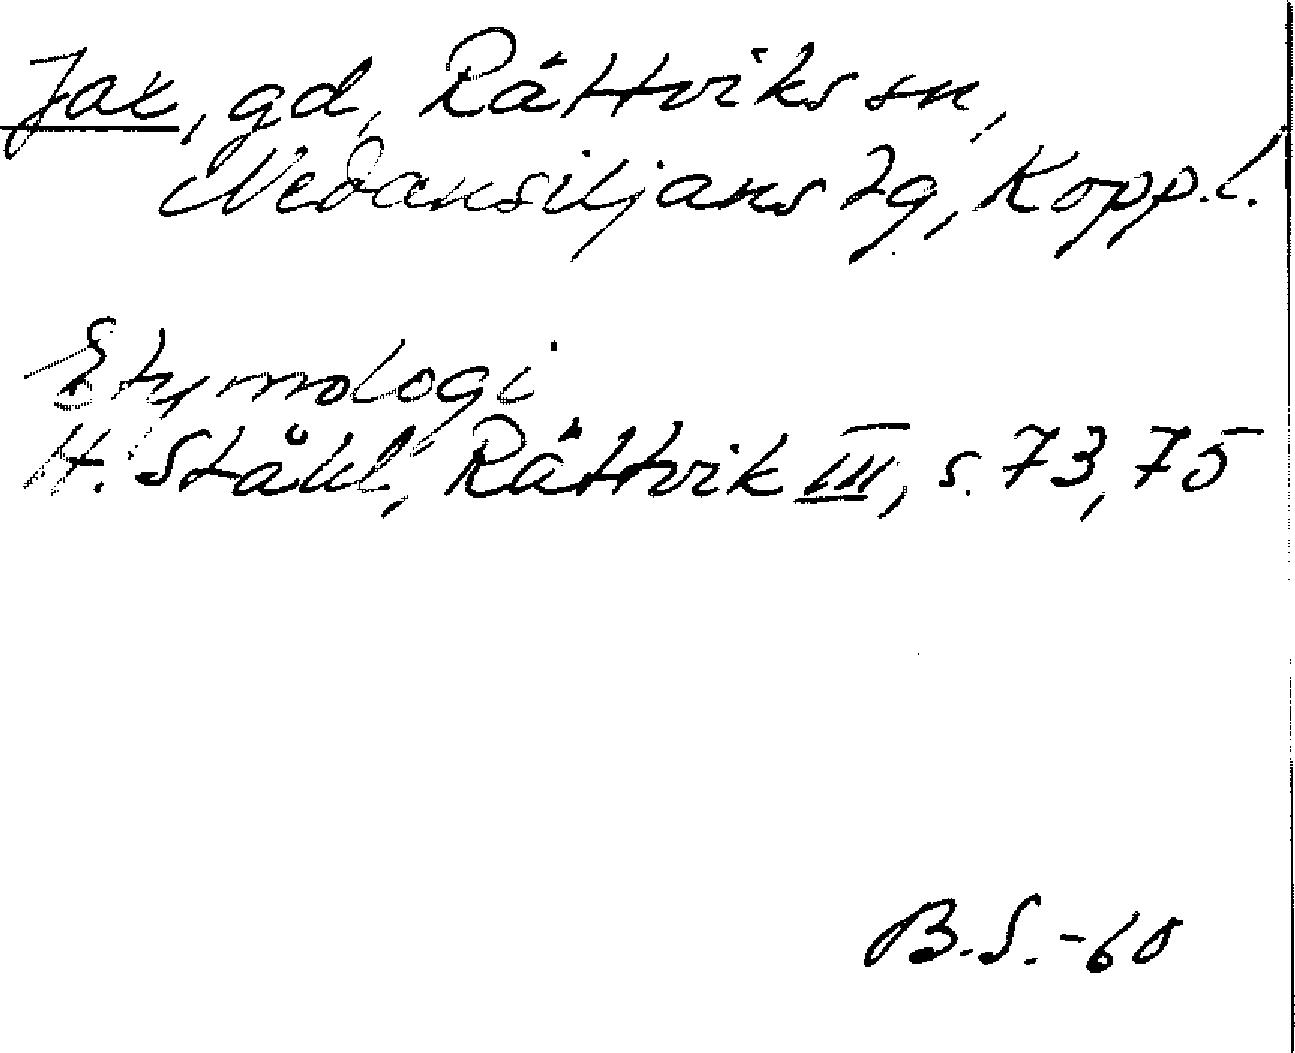 Jax, gd, Rättviks sn,
Nedansiljans tg, Kopp.l.
Etymologi
H. Ståhl, Rättvik III, s. 73, 75
B.S.-60